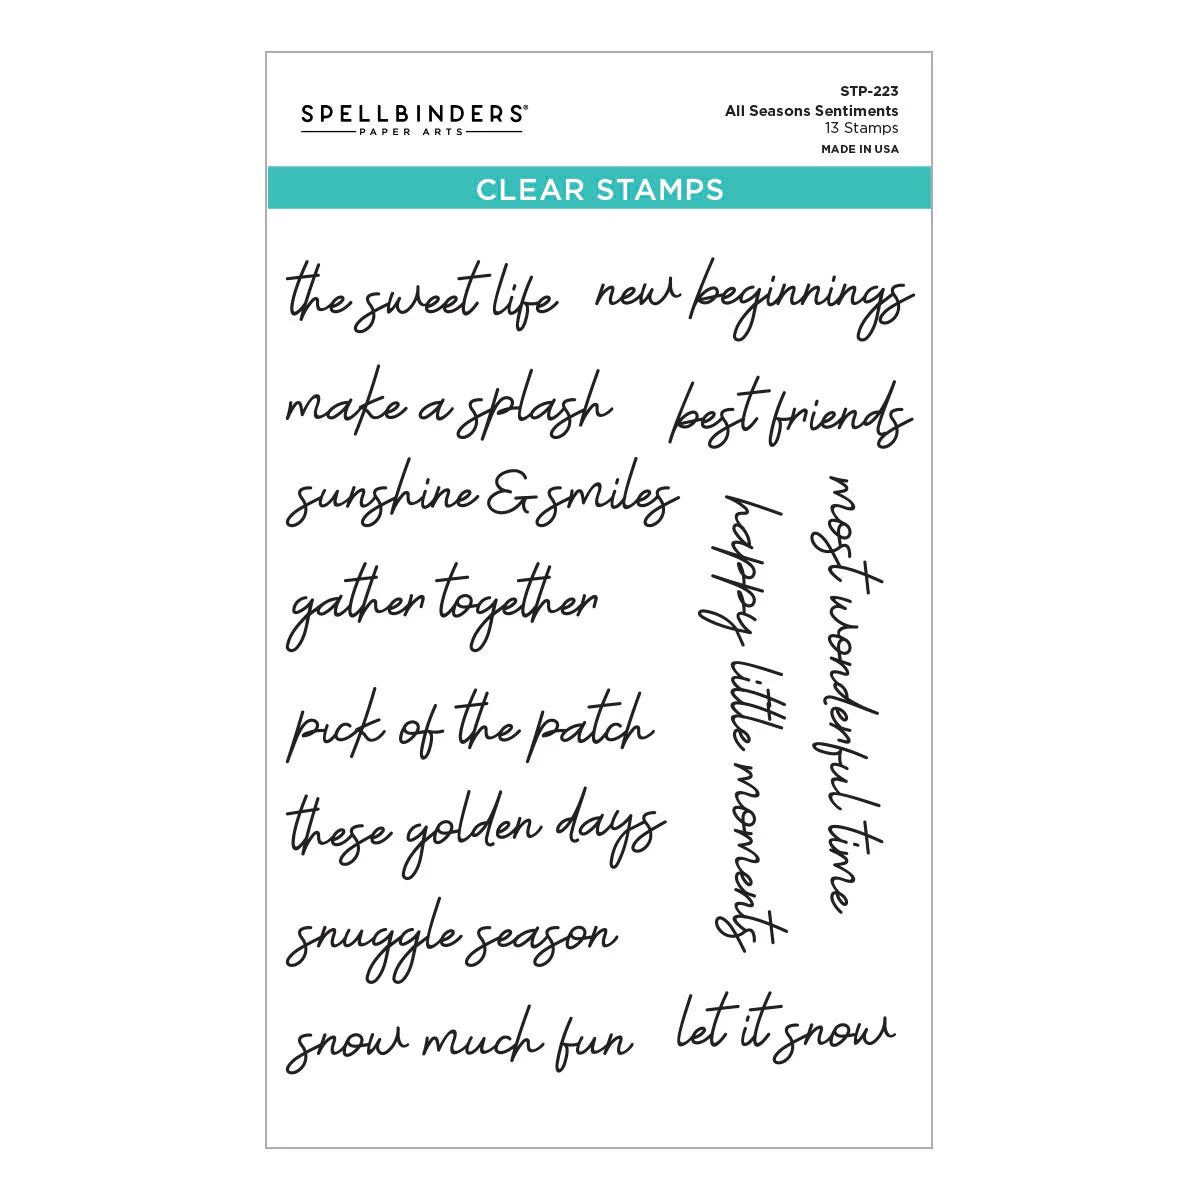 SPELLBINDERS®
PAPER ARTS
STP-223
All Seasons Sentiments
13 Stamps
MADE IN USA
CLEAR STAMPS
the sweet life
new beginnings
make a splash
best friends
sunshine & smiles
gather together
pick of the patch
these golden days
snuggle season
snow much fun
happy little moments
most wonderful time
let it snow